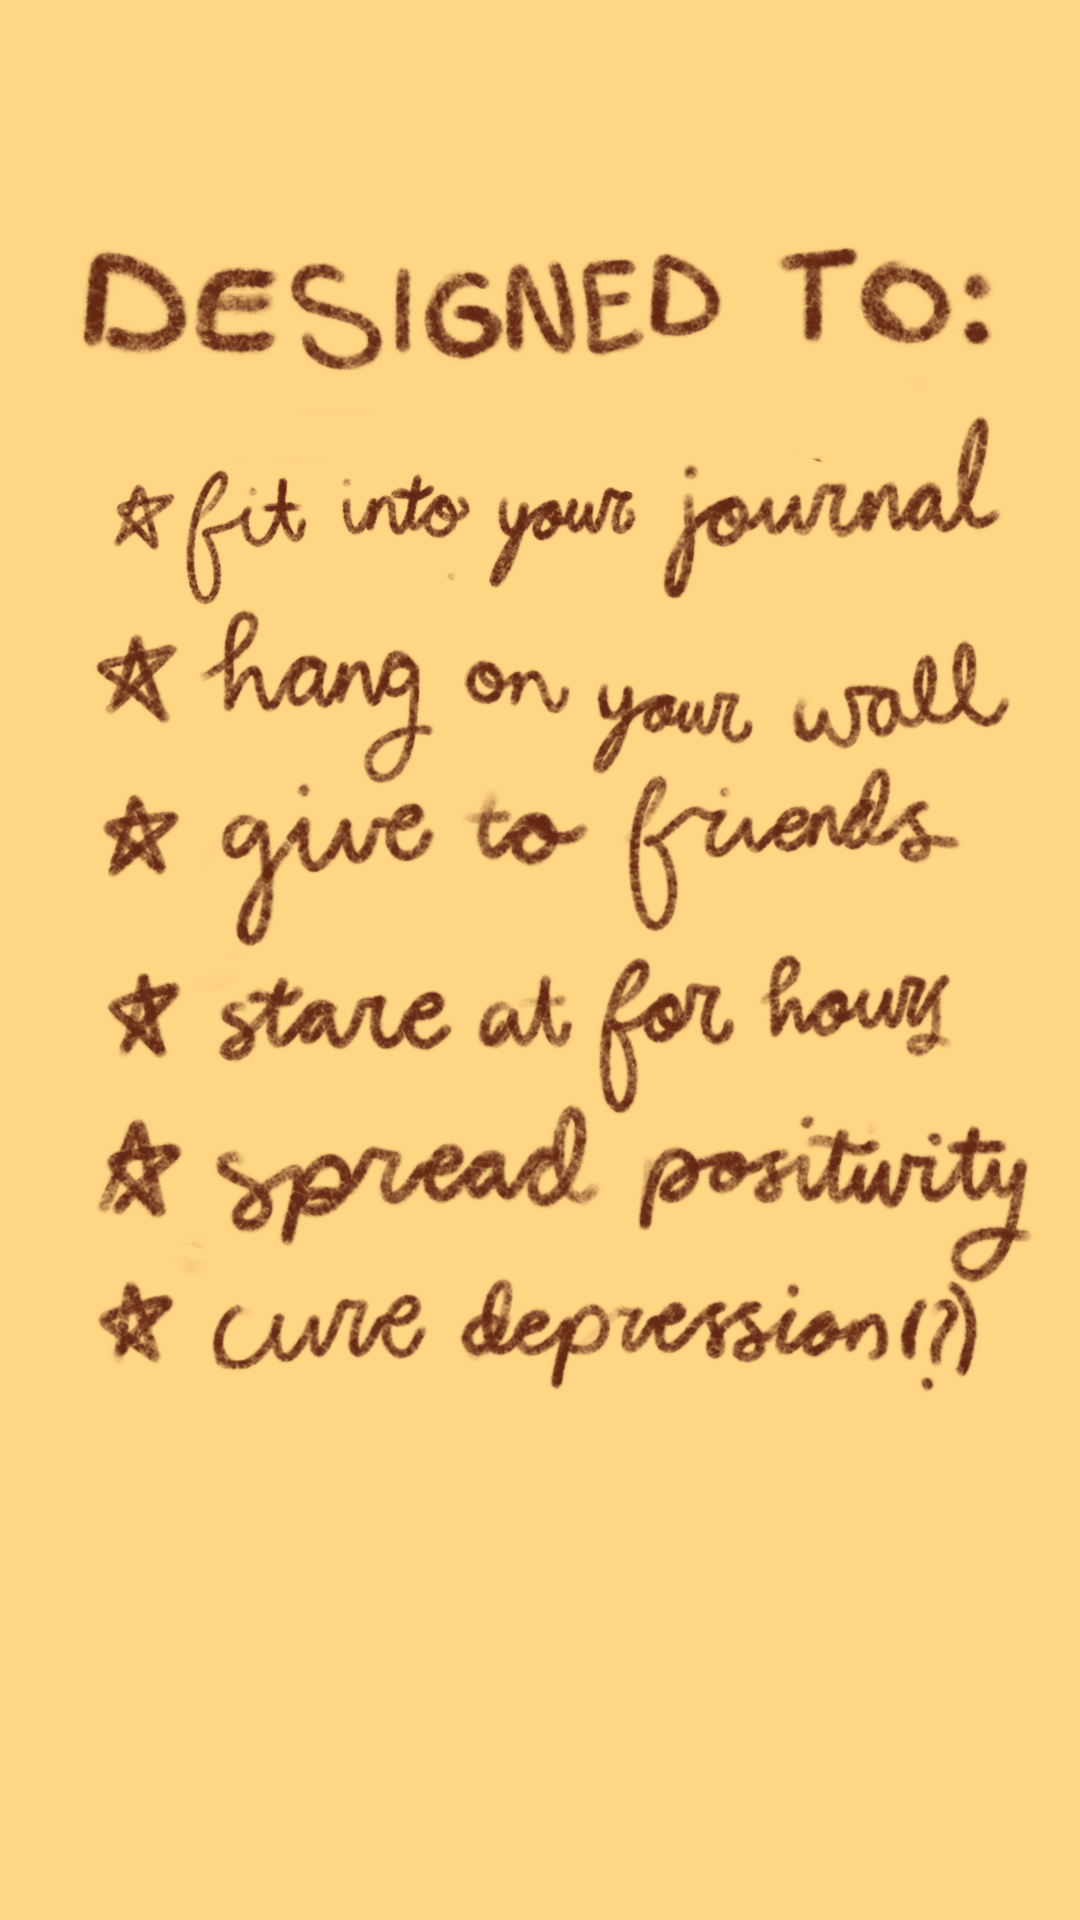 DESIGNED TO:
☆ fit into your journal
☆ hang on your wall
☆ give to friends
☆ stare at for hours
☆ spread positivity
☆ cure depression(?)